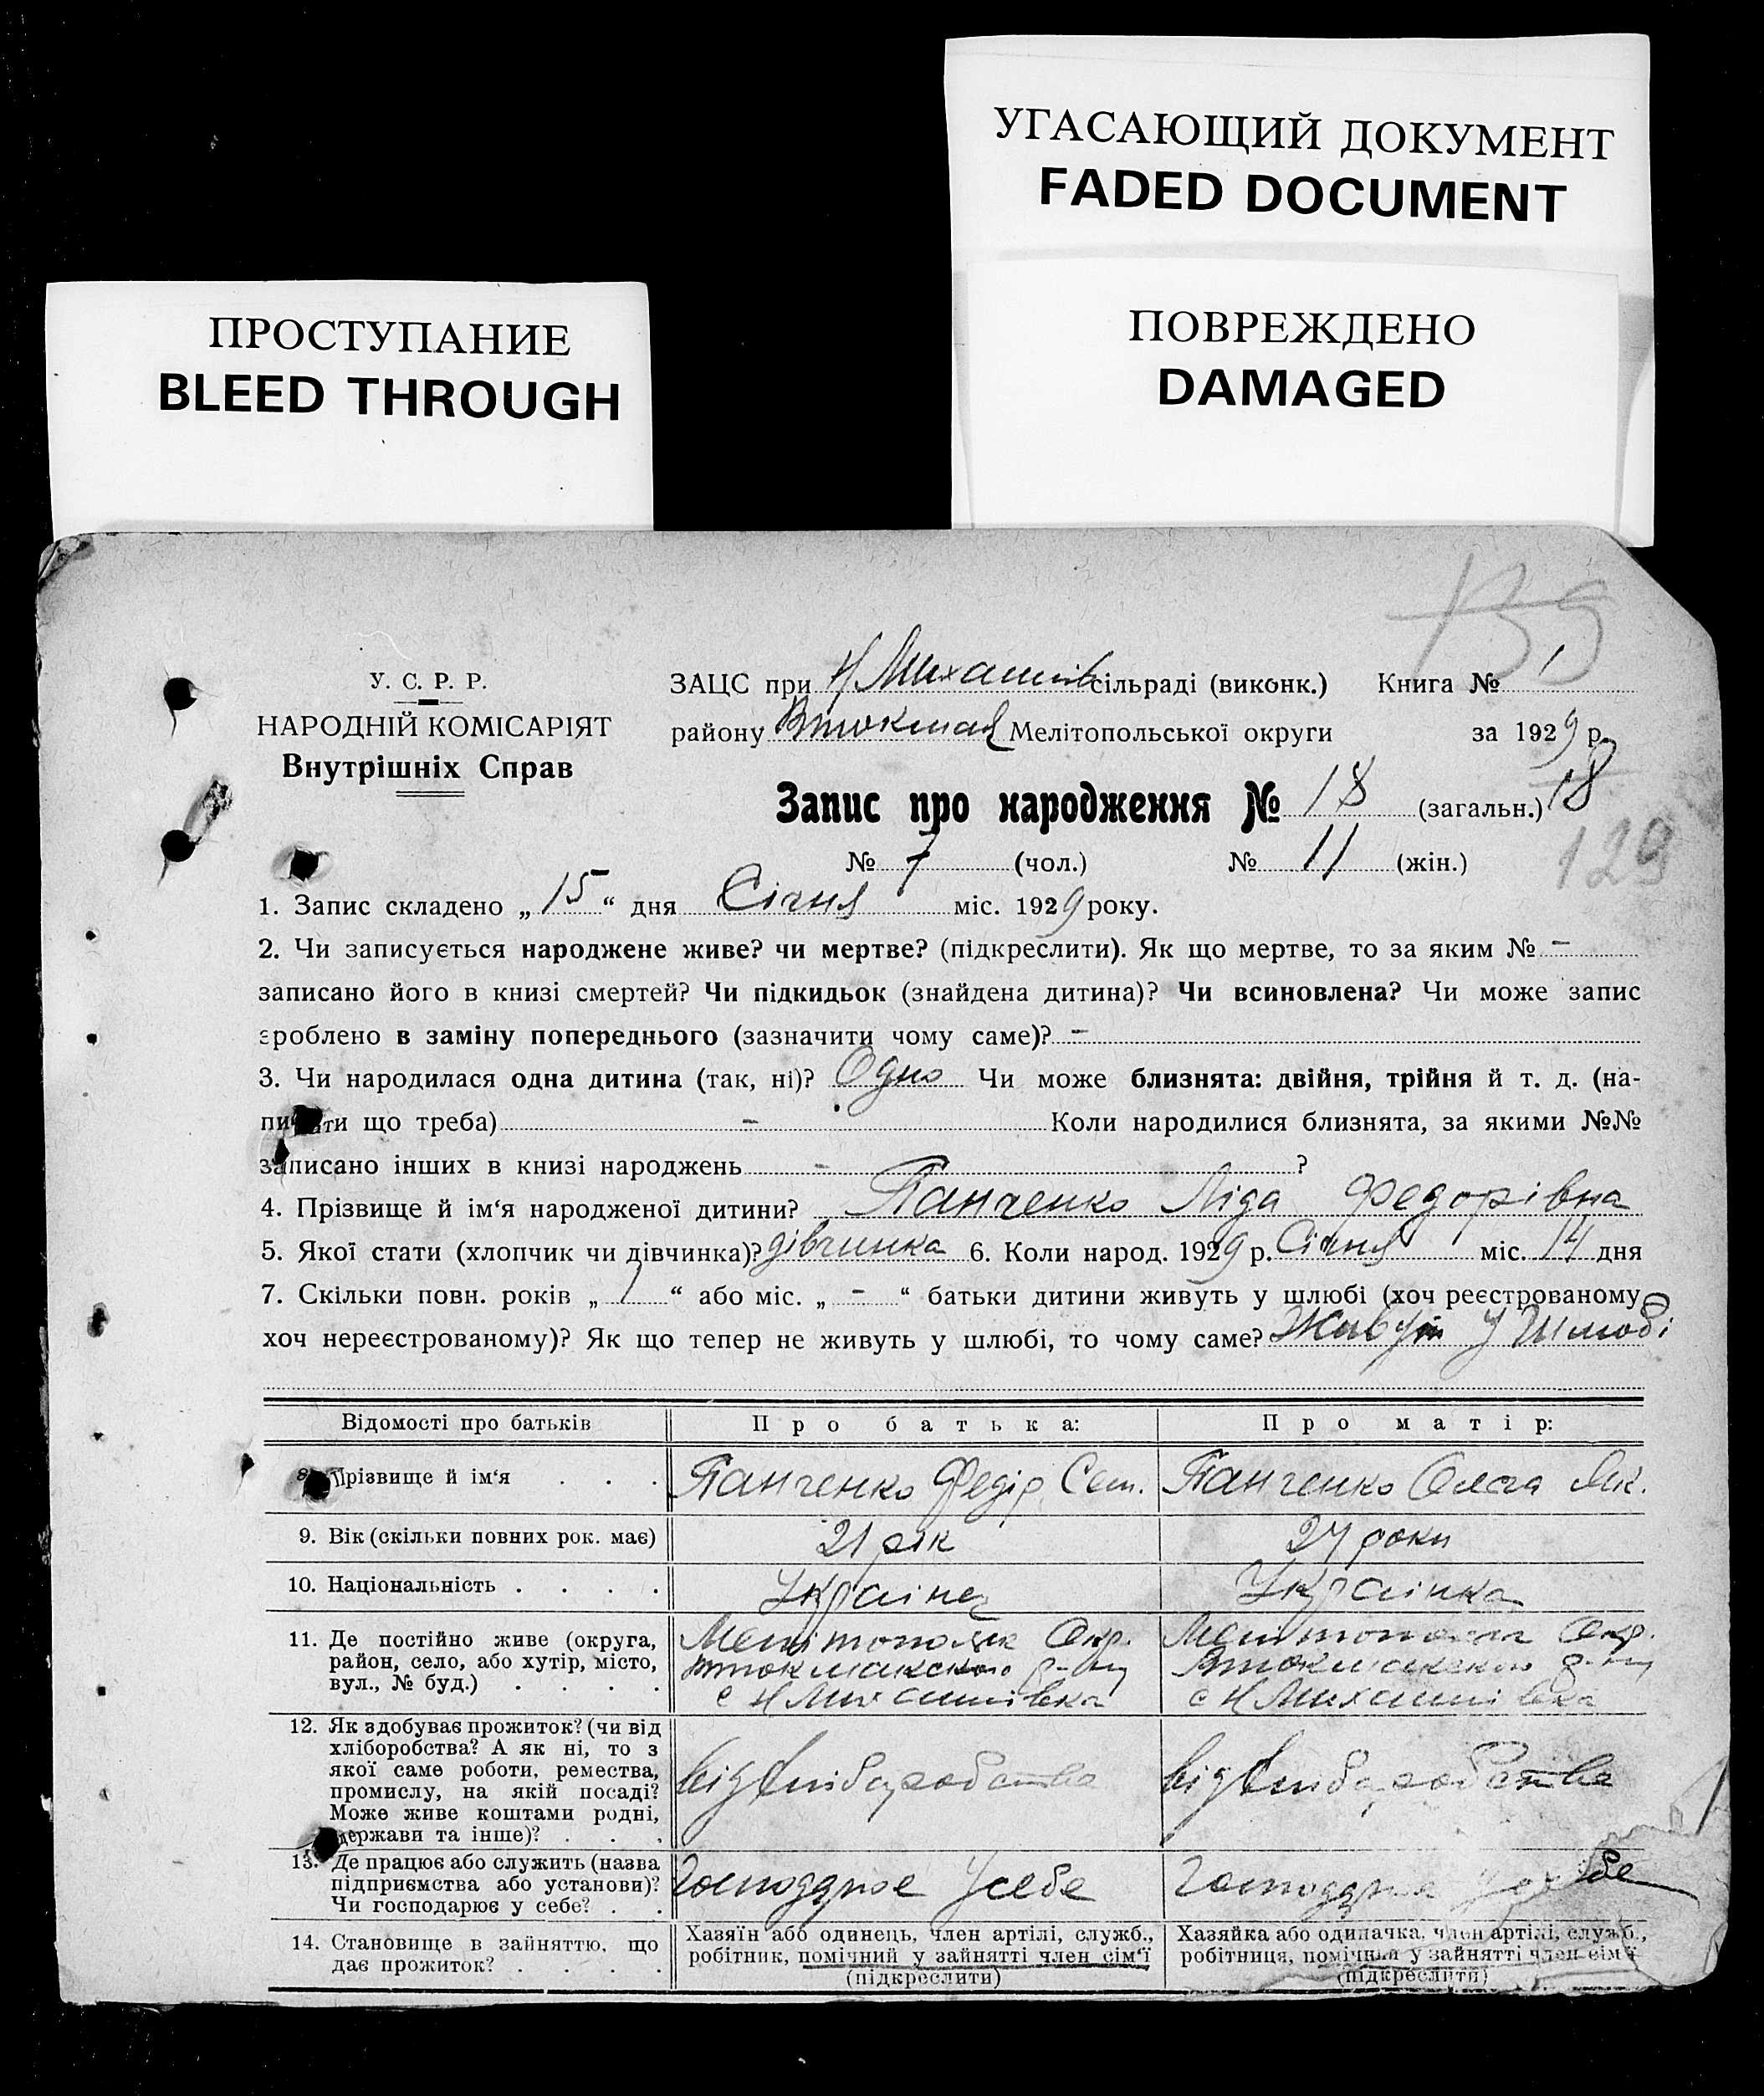 УГАСАЮЩИЙ ДОКУМЕНТ
FADED DOCUMENT
ПОВРЕЖДЕНО
DAMAGED
ПРОСТУПАНИЕ
BLEED THROUGH
У. С. Р. Р.
НАРОДНІЙ КОМІСАРІЯТ
Внутрішніх Справ
ЗАЦС при Н Михайлів сільраді (виконк.) Книга № 1
району Втокмак Мелітопольської округи за 1929 р.
Запис про народження № 18 (загальн.) 18
129
№ 7 (чол.) № 11 (жін.)
1. Запис складено „ 15 “ дня Січня міс. 1929 року.
2. Чи записується народжене живе? чи мертве? (підкреслити). Як що мертве, то за яким № -
записано його в книзі смертей? Чи підкидьок (знайдена дитина)? Чи всиновлена? Чи може запис
зроблено в заміну попереднього (зазначити чому саме)? -
3. Чи народилася одна дитина (так, ні)? Одно Чи може близнята: двійня, трійня й т. д. (на-
писати що треба) - Коли народилися близнята, за якими №№
записано інших в книзі народжень - ?
4. Прізвище й ім‘я народженої дитини? Панченко Ліда Федорівна
5. Якої стати (хлопчик чи дівчинка)? дівчинка 6. Коли народ. 1929 р. Січня міс. 14 дня
7. Скільки повн. років „ 1 “ або міс. „ - “ батьки дитини живуть у шлюбі (хоч реєстрованому
хоч нереєстрованому)? Як що тепер не живуть у шлюбі, то чому саме? Живуть у Шлюбі
Відомості про батьків
Про батька:
Про матір:
8. Прізвище й ім‘я . . .
Панченко Федір Сем.
Панченко Олега Як.
9. Вік (скільки повних рок. має)
21 рік
24 роки
10. Національність . . . .
Украінец
Украінка
11. Де постійно живе (округа,
район, село, або хутір, місто,
вул., № буд.) . . . .
Мелітопольск Окр.
Втокмакского р-ну
с Н Михайлівка
Мелітопольск Окр.
Втокмакского р-ну
с Н Михайлівка
12. Як здобуває прожиток? (чи від
хліборобства? А як ні, то з
якої саме роботи, ремества,
промислу, на якій посаді?
Може живе коштами родні,
держави та інше)? . . .
від хліборобства
від хліборобства
13. Де працює або служить (назва
підприємства або установи)?
Чи господарює у себе? . .
Господарює у себе
Господарює у себе
14. Становище в зайняттю, що
дає прожиток? . . . .
Хазяїн або одинець, член артілі, служб.,
робітник, помічний у зайнятті член сім‘ї
(підкреслити)
Хазяйка або одиначка, член артілі, служб.,
робітниця, помічний у зайнятті член сім‘ї
(підкреслити)